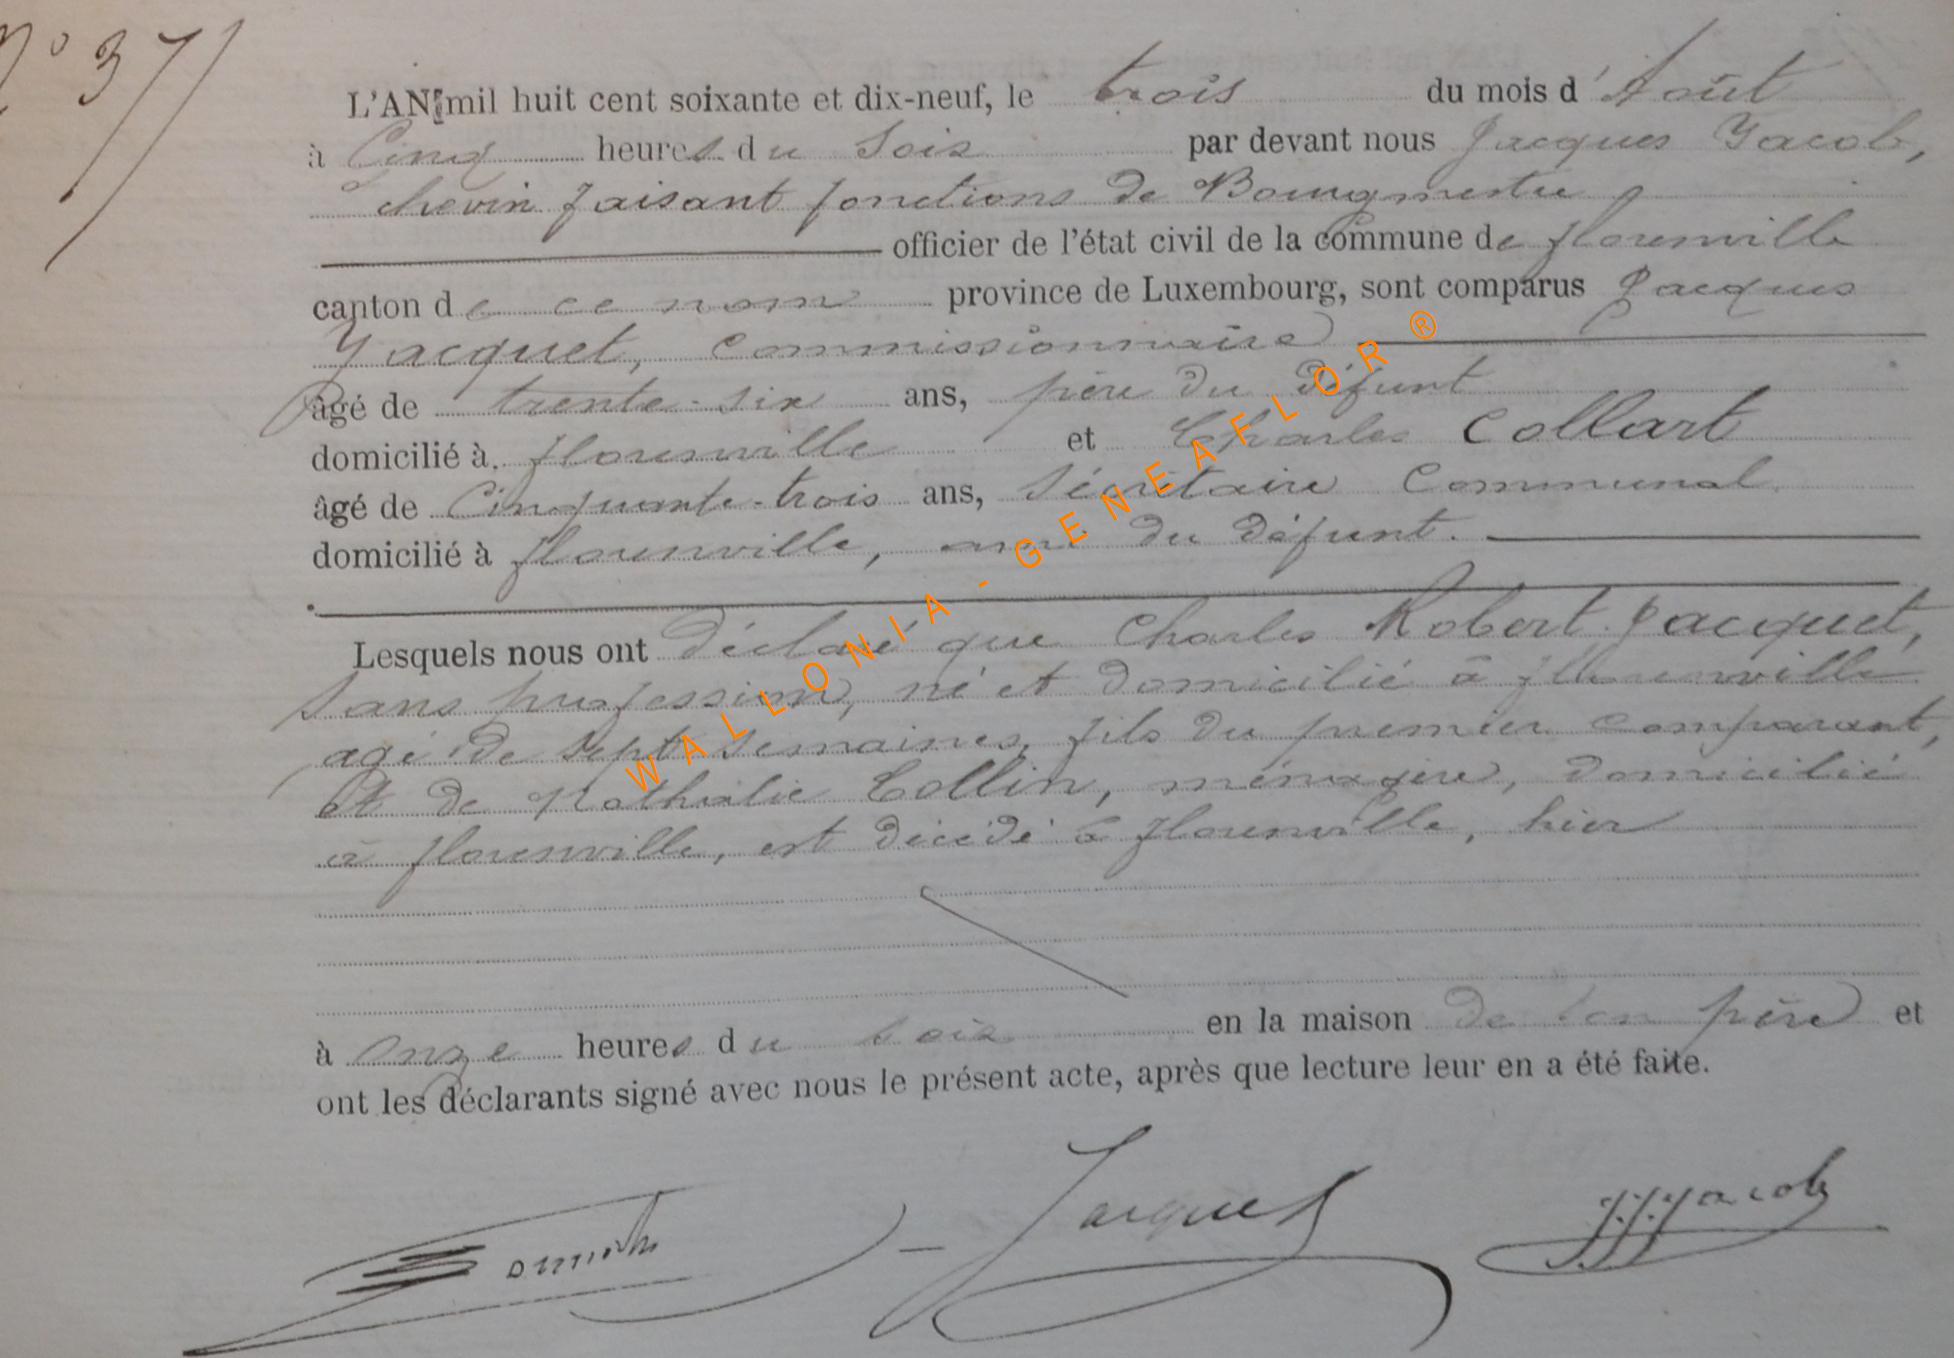 N° 37
L'AN mil huit cent soixante et dix-neuf, le trois du mois d'Août
à Cinq heures du Soir par devant nous Jacques Jacob,
échevin faisant fonctions de Bourgmestre
officier de l'état civil de la commune de florenville
canton de ce nom province de Luxembourg, sont comparus Jacques
Jacquet, Commissionnaire
âgé de trente-six ans, père du défunt
domicilié à florenville et Charles Collart
âgé de Cinquante-trois ans, Sécrétaire Communal
domicilié à florenville, ami du défunt.
Lesquels nous ont déclaré que Charles Robert Jacquet,
sans profession, né et domicilié à florenville
agé de sept semaines, fils du premier comparant,
et de Nathalie Collin, ménagère, domicilié
à florenville, est décédé à florenville, hier
à onze heures du soir en la maison de son père et
ont les déclarants signé avec nous le présent acte, après que lecture leur en a été faite.
Jacquet
J.J. Jacob
WALLONIA - GENEAFLOR ®